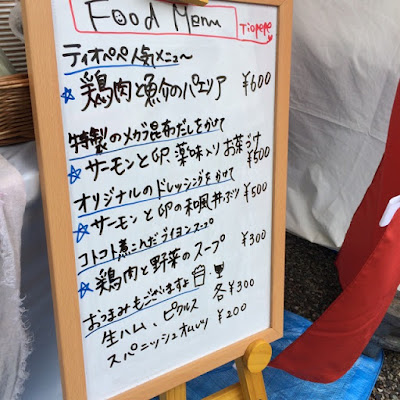 Food Menu
Tiopepe
ティオペペ人気メニュー
☆鶏肉と魚介のパエリア ¥600
特製のメガブ昆布だしをかけて
☆サーモンと 薬味入りお茶づけ ¥500
オリジナルのドレッシングをかけて
☆サーモンと の和風丼ぶり ¥500
コトコト煮こんだ スープ
☆鶏肉と野菜のスープ ¥300
おつまみもございますよ
生ハム、ピクルス 各¥300
スパニッシュオムレツ ¥200